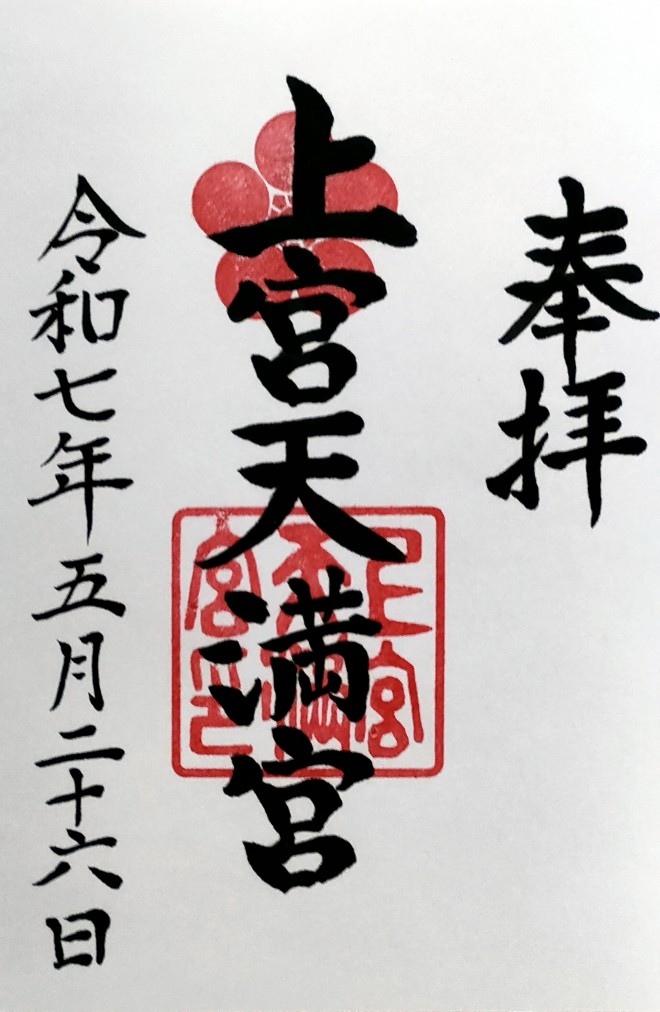 奉拝
上宮天満宮
上宮
天満
宮印
令和七年五月二十六日